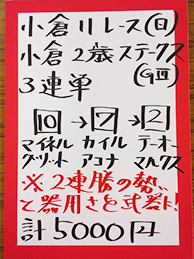 小倉11レース(日)
小倉2歳ステークス(GⅢ)
3連単
10→7→2
マイネル カイル テーオー
グリット アコナ マルクス
※2連勝の勢い
と器用さを武器に!
計5000円